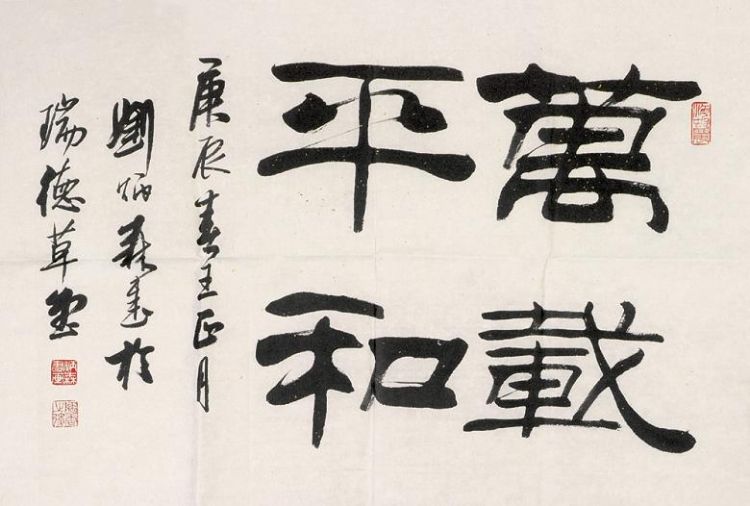 萬載
平和
庚辰春王正月
劉炳森書於
瑞德草堂